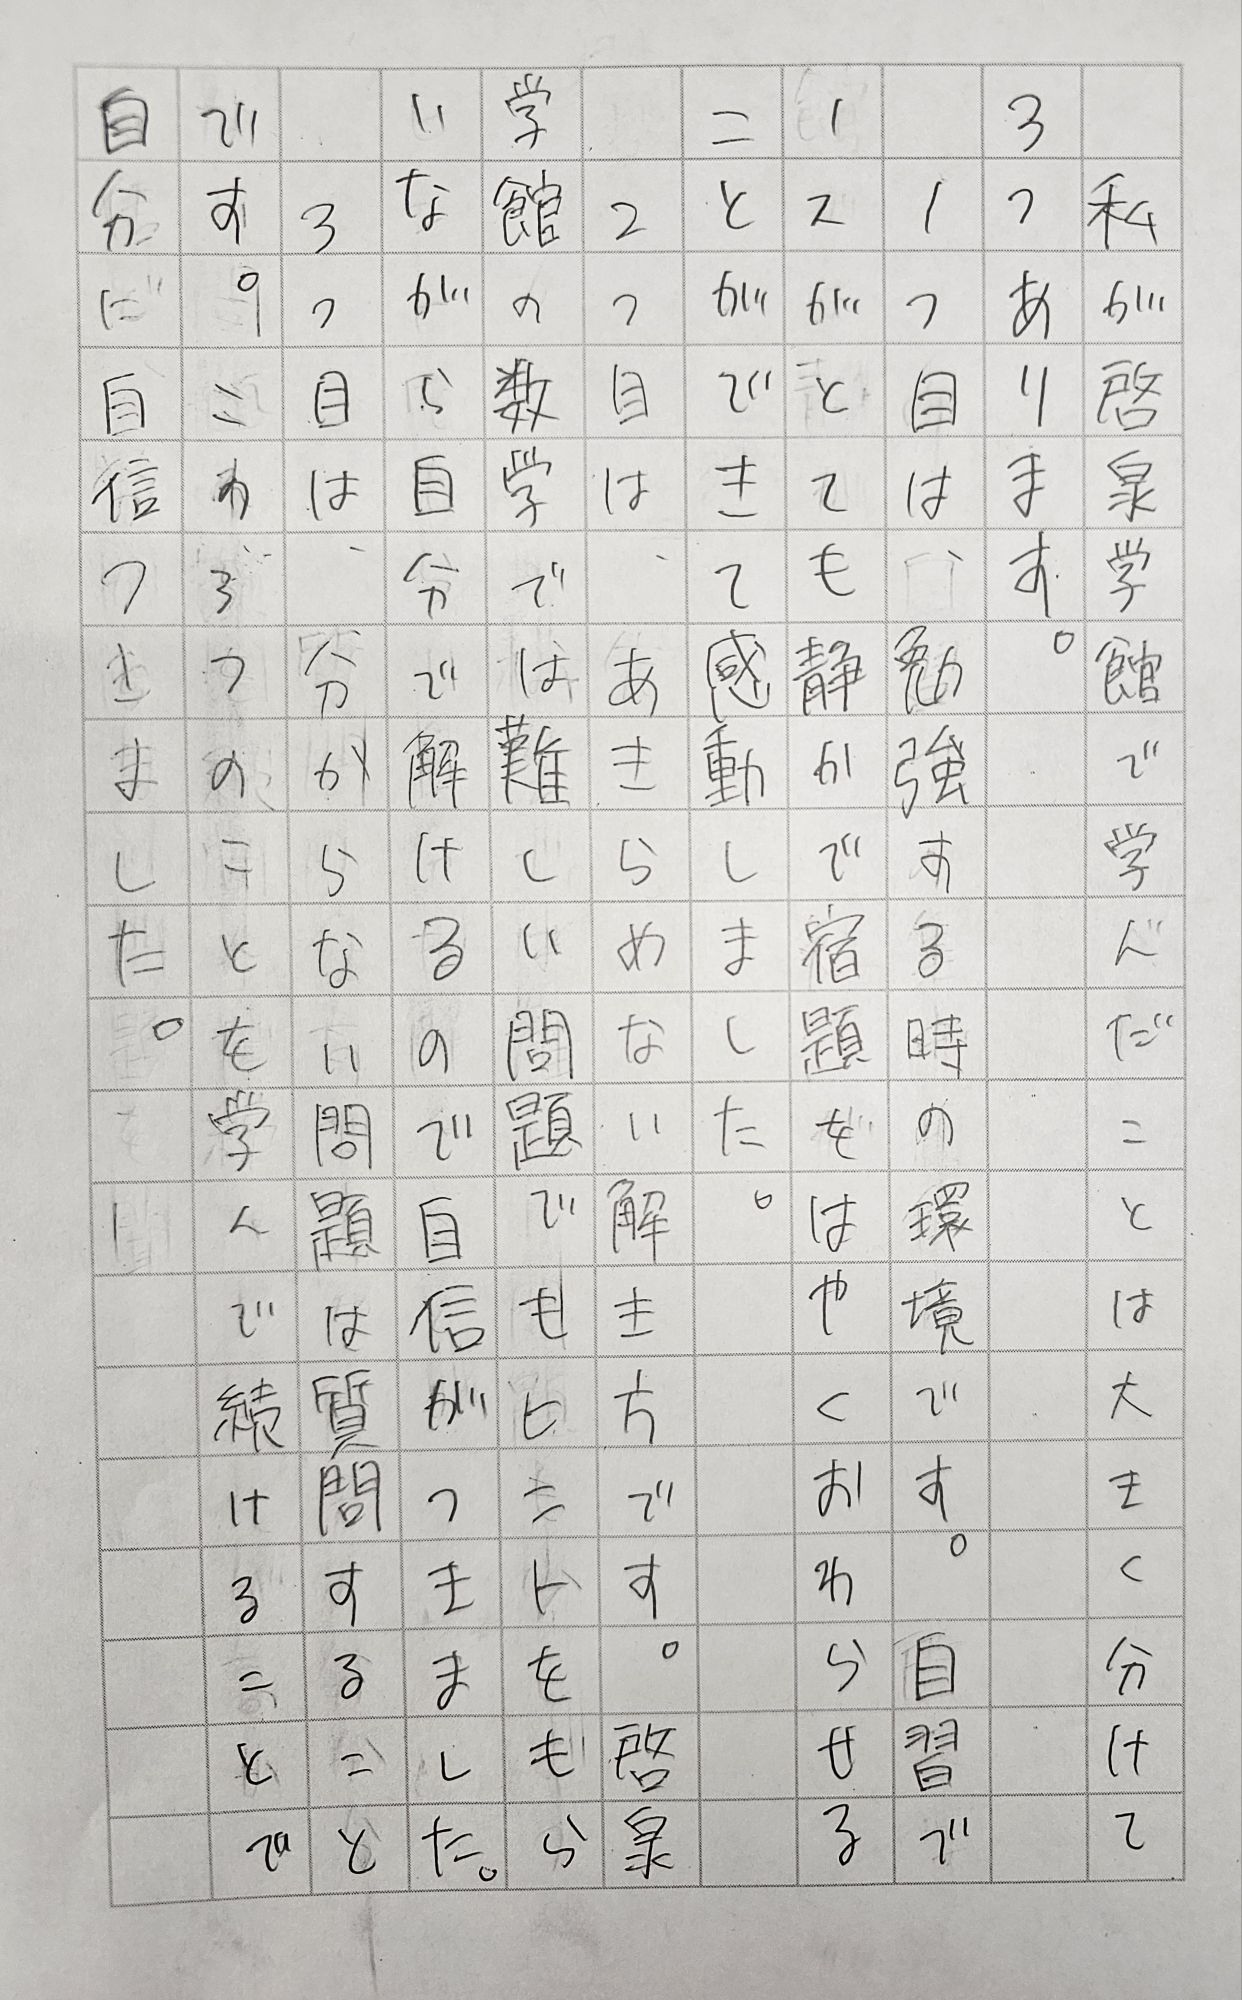 私が啓泉学館で学んだことは大きく分けて
3つあります。
1つ目は、勉強する時の環境です。自習で
1スがとても静かで宿題をはやくおわらせる
ことができて感動しました。
2つ目は、あきらめない解き方です。啓泉
学館の数学では難しい問題でもヒントをもら
いながら自分で解けるので自信がつきました。
3つ目は、分からない問題は質問すること
です。これら3つのことを学んで続けることで
自分に自信つきました。